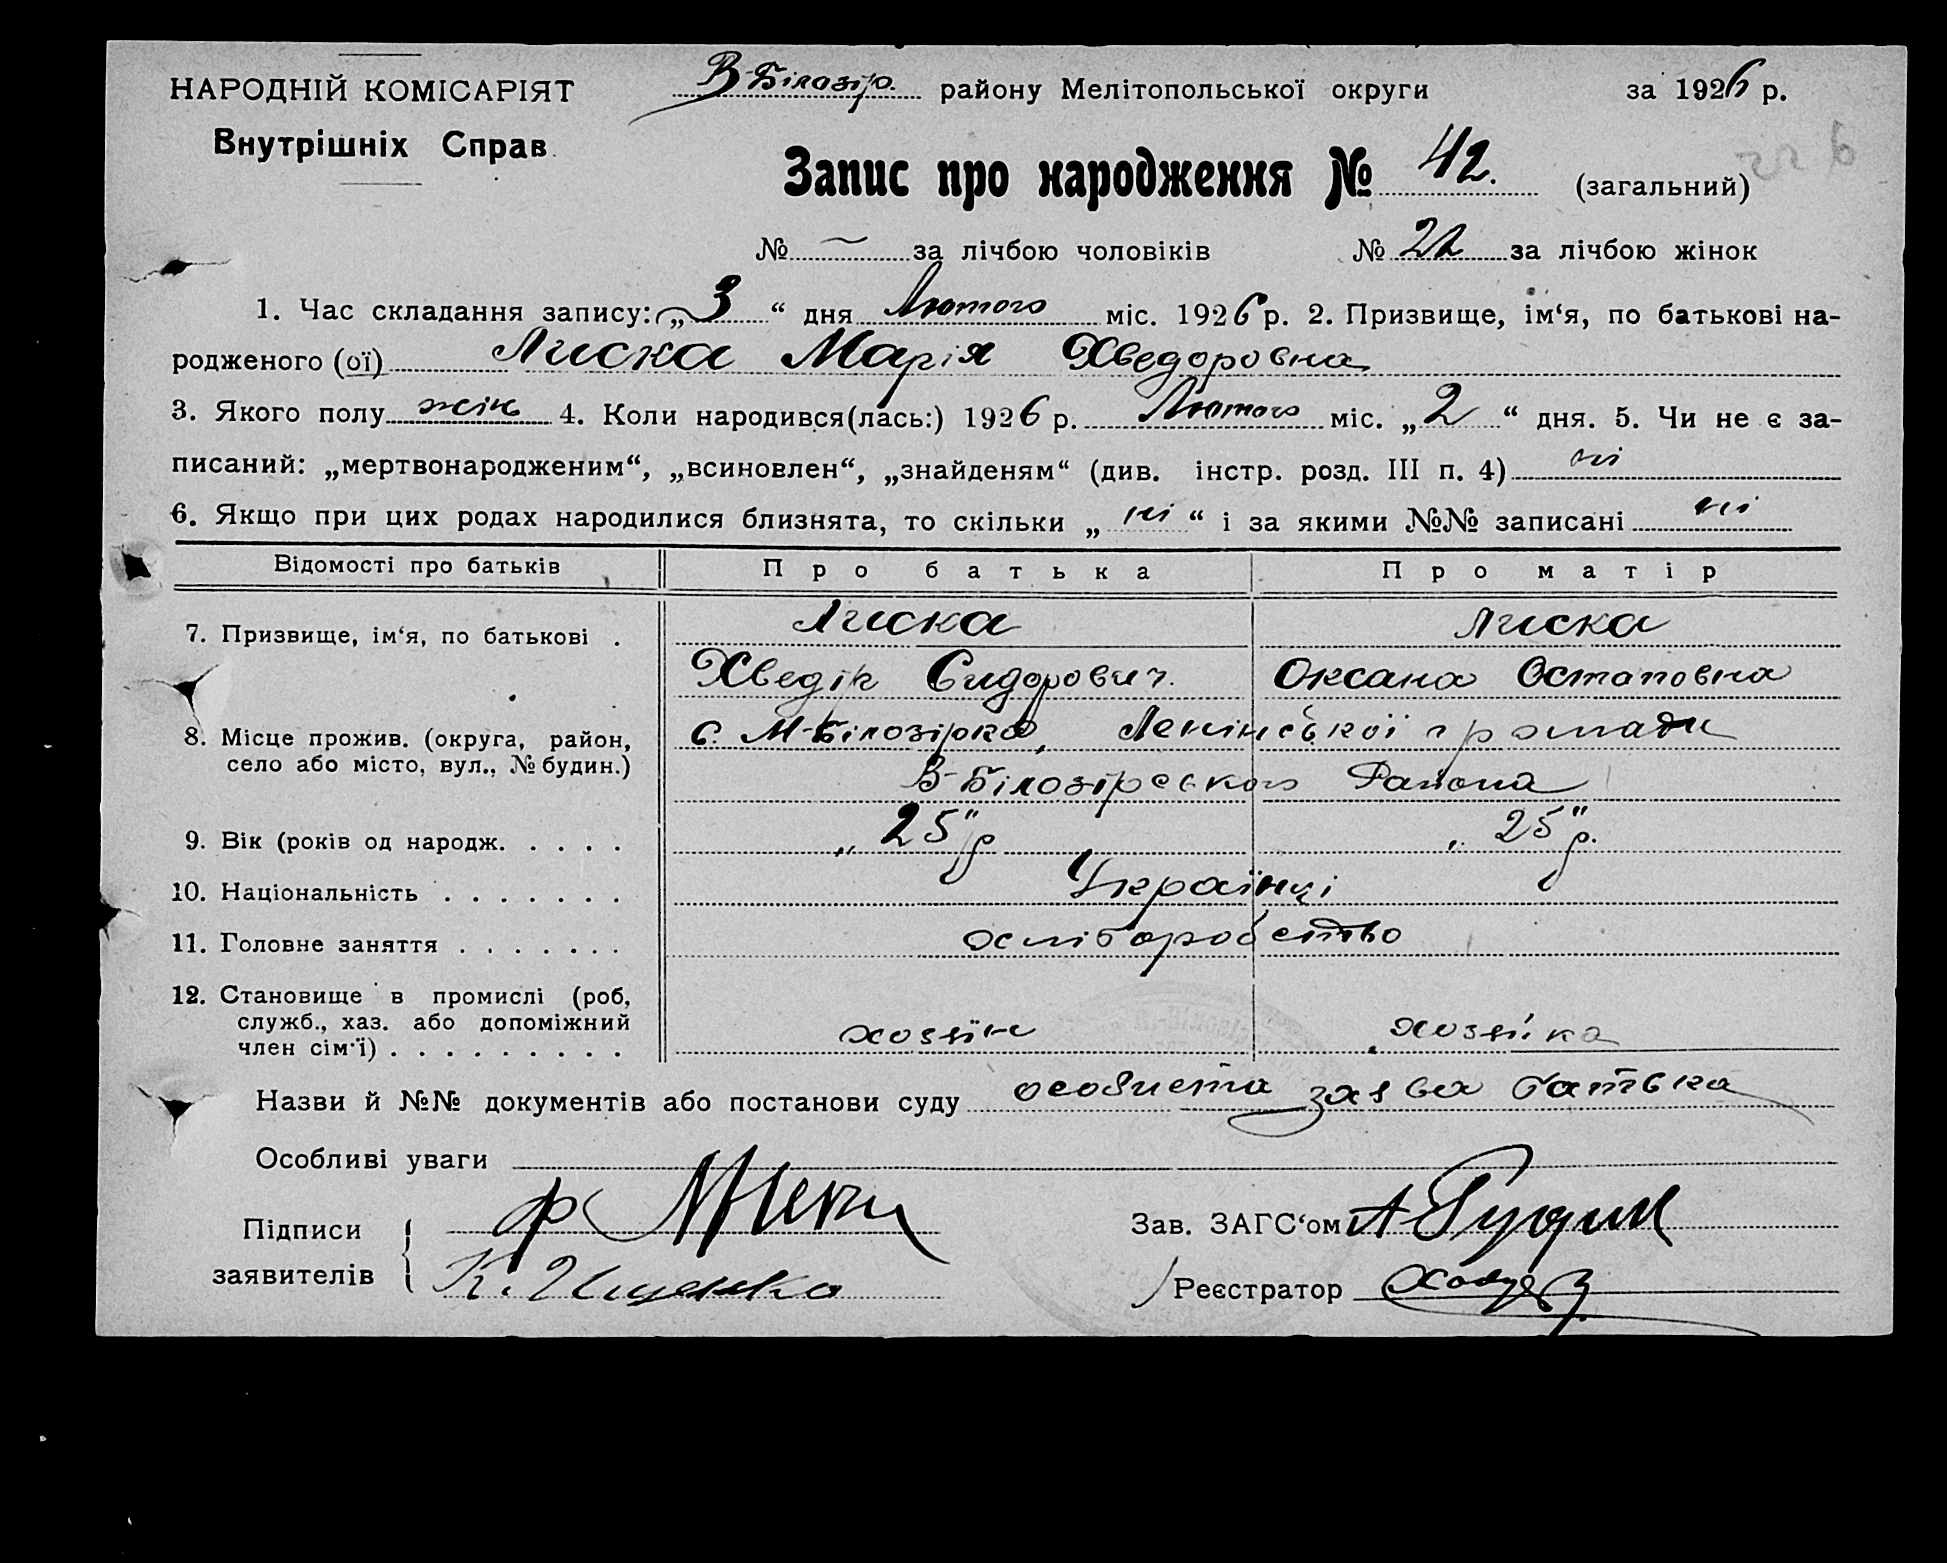 НАРОДНІЙ КОМІСАРІЯТ
Внутрішніх Справ.
В-Білозір. району Мелітопольської округи за 1926 р.
Запис про народження № 42. (загальний)
№ — за лічбою чоловіків № 22 за лічбою жінок
1. Час складання запису: „3“ дня Лютого міс. 1926 р. 2. Призвище, ім‘я, по батькові на-
родженого (ої) Лиска Марія Хведоровна
3. Якого полу жін 4. Коли народився(лась:) 1926 р. Лютого міс. „2“ дня. 5. Чи не є за-
писаний: „мертвонародженим“, „всиновлен“, „знайденям“ (див. інстр. розд. III п. 4) ні
6. Якщо при цих родах народилися близнята, то скільки „ні“ і за якими №№ записані ні
Відомості про батьків Про батька Про матір
7. Призвище, ім‘я, по батькові . Лиска Лиска
Хведір Сидорович. Оксана Остаповна
8. Місце прожив. (округа, район, село або місто, вул., № будин.) с. М-Білозірка, Ленінської громади
В-Білозірського Района
9. Вік (років од народж. . . . . „25“ р „25“ р.
10. Національність . . . . . . . Українці
11. Головне заняття . . . . . . .
12. Становище в промислі (роб,
служб., хаз. або допоміжний
член сім‘ї) . . . . . . . . . хозяїн хозяйка
Назви й №№ документів або постанови суду особиста заява батька
Особливі уваги
Підписи
заявителів
ф
К. Ищенко
Зав. ЗАГС‘ом А
Реєстратор